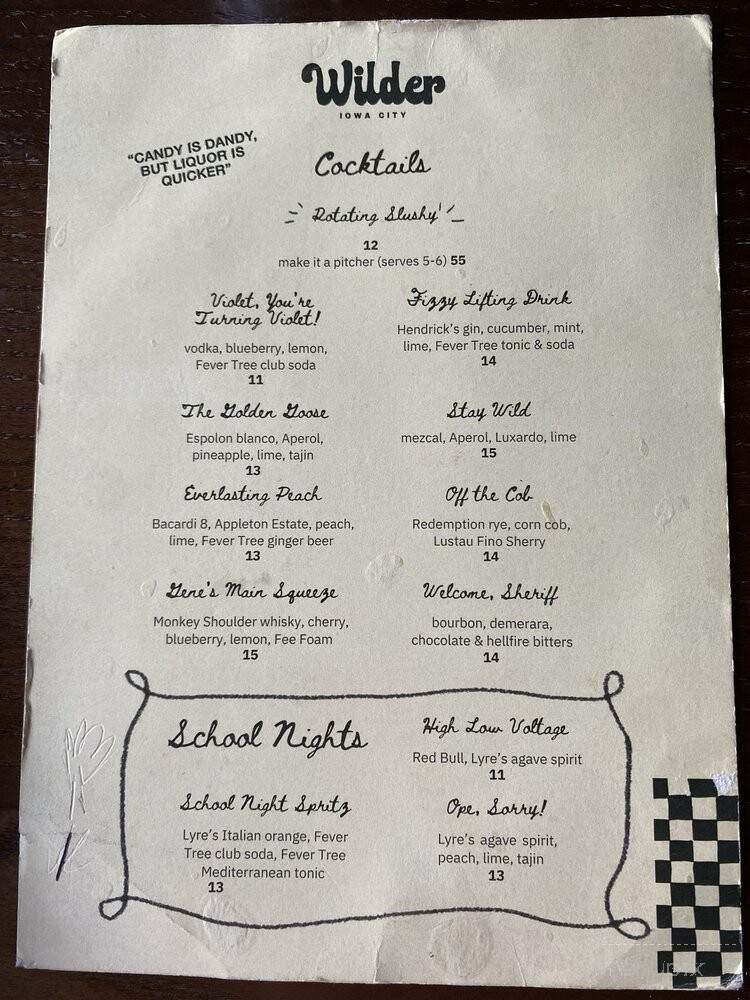 Wilder
IOWA CITY
"CANDY IS DANDY,
BUT LIQUOR IS
QUICKER"
Cocktails
Rotating Slushy
12
make it a pitcher (serves 5-6) 55
Violet, You're
Turning Violet!
vodka, blueberry, lemon,
Fever Tree club soda
11
Fizzy Lifting Drink
Hendrick's gin, cucumber, mint,
lime, Fever Tree tonic & soda
14
The Golden Goose
Espolon blanco, Aperol,
pineapple, lime, tajin
13
Stay Wild
mezcal, Aperol, Luxardo, lime
15
Everlasting Peach
Bacardi 8, Appleton Estate, peach,
lime, Fever Tree ginger beer
13
Off the Cob
Redemption rye, corn cob,
Lustau Fino Sherry
14
Gene's Main Squeeze
Monkey Shoulder whisky, cherry,
blueberry, lemon, Fee Foam
15
Welcome, Sheriff
bourbon, demerara,
chocolate & hellfire bitters
14
School Nights
School Night Spritz
Lyre's Italian orange, Fever
Tree club soda, Fever Tree
Mediterranean tonic
13
High Low Voltage
Red Bull, Lyre's agave spirit
11
Ope, Sorry!
Lyre's agave spirit,
peach, lime, tajin
13